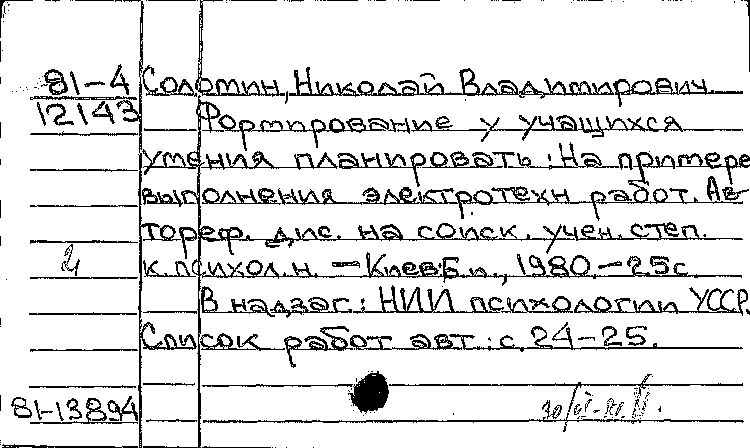 81-4 Соломин, Николай Владимирович.
12143 Формирование у учащихся
умения планировать: На примере
выполнения электротехн работ. Ав-
тореф. дис. на соиск. учен. степ.
к. психол. н. — Киев: Б.и., 1980. — 25 с.
В надзаг.: НИИ психологии УССР.
Список работ авт.: с. 24-25.
81-13894